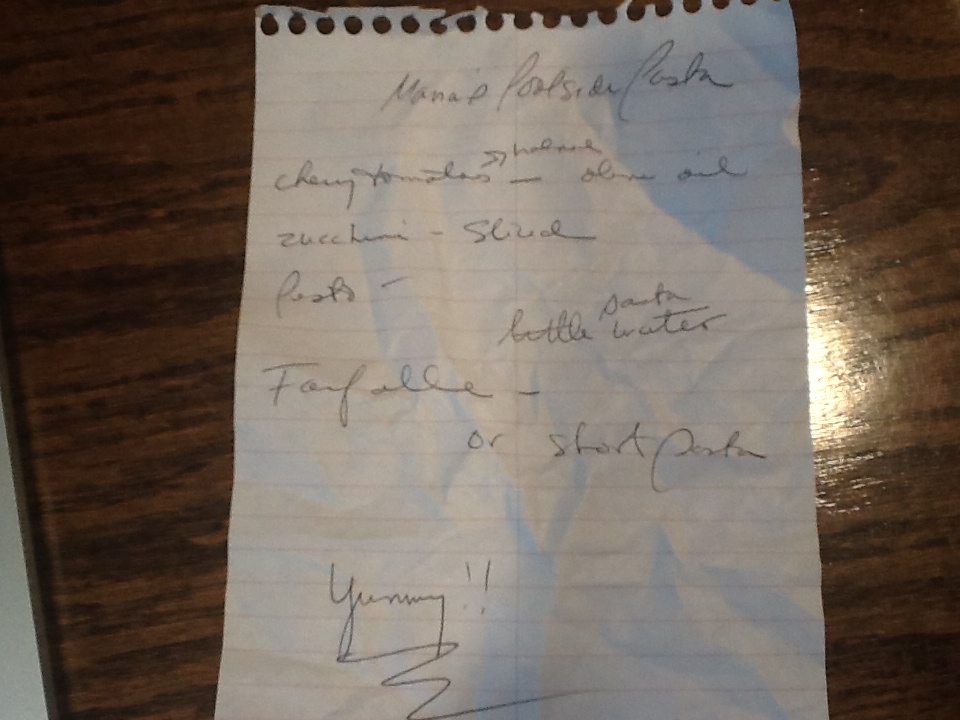 Maria's Poolside Pasta
halved
cherry tomatoes - olive oil
zucchini - Sliced
Pesto -
pasta
little water
Farfalle -
or short pasta
Yummy!!